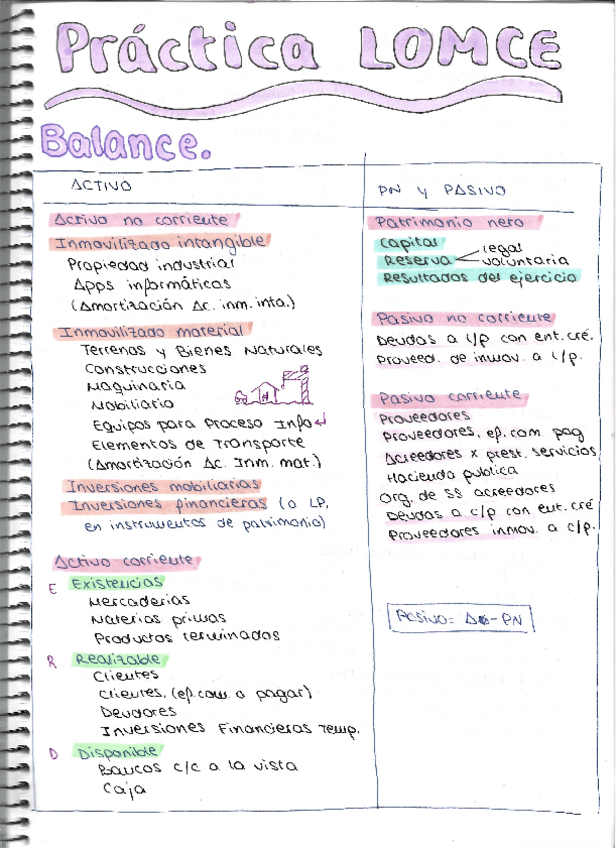 Práctica LOMCE
Balance.
ACTIVO
Activo no corriente
Inmovilizado intangible
Propiedad industrial
Apps informáticas
(Amortización Ac. inm. inta.)
Inmovilizado material
Terrenos y Bienes Naturales
Construcciones
Maquinaria
Mobiliario
Equipos para Proceso Info
Elementos de Transporte
(Amortización Ac. Inm. mat.)
Inversiones mobiliarias
Inversiones financieras (a LP,
en instrumentos de patrimonio)
Activo corriente
E Existencias
Mercaderías
Materias primas
Productos terminados
R Realizable
Clientes
Clientes, (ef. com. a pagar)
Deudores
Inversiones Financieras Temp.
D Disponible
Bancos c/c a la vista
Caja
PN y PASIVO
Patrimonio neto
Capital
Reserva legal
voluntaria
Resultados del ejercicio
Pasivo no corriente
Deudas a l/p con ent. cré.
Proveed. de inmov. a l/p.
Pasivo corriente
Proveedores
Proveedores, ef. com pag
Acreedores x prest. servicios
Hacienda publica
Org. de SS acreedores
Deudas a c/p con ent. cré
Proveedores inmov. a c/p.
Pasivo = - PN